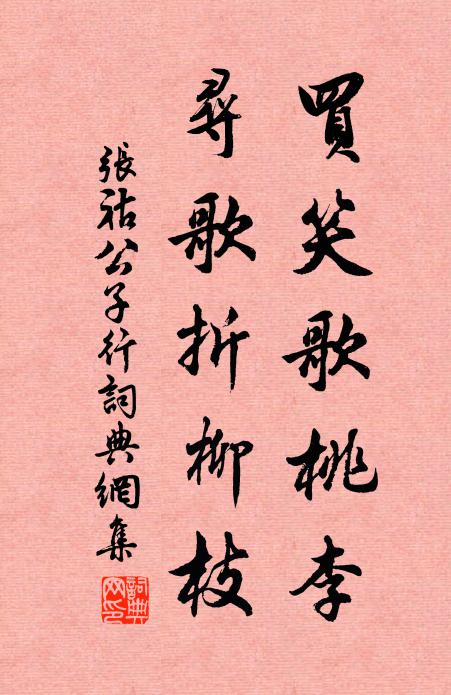 買笑歌桃李
尋歌折柳枝
張祜公子行詞典網集
詞典網印